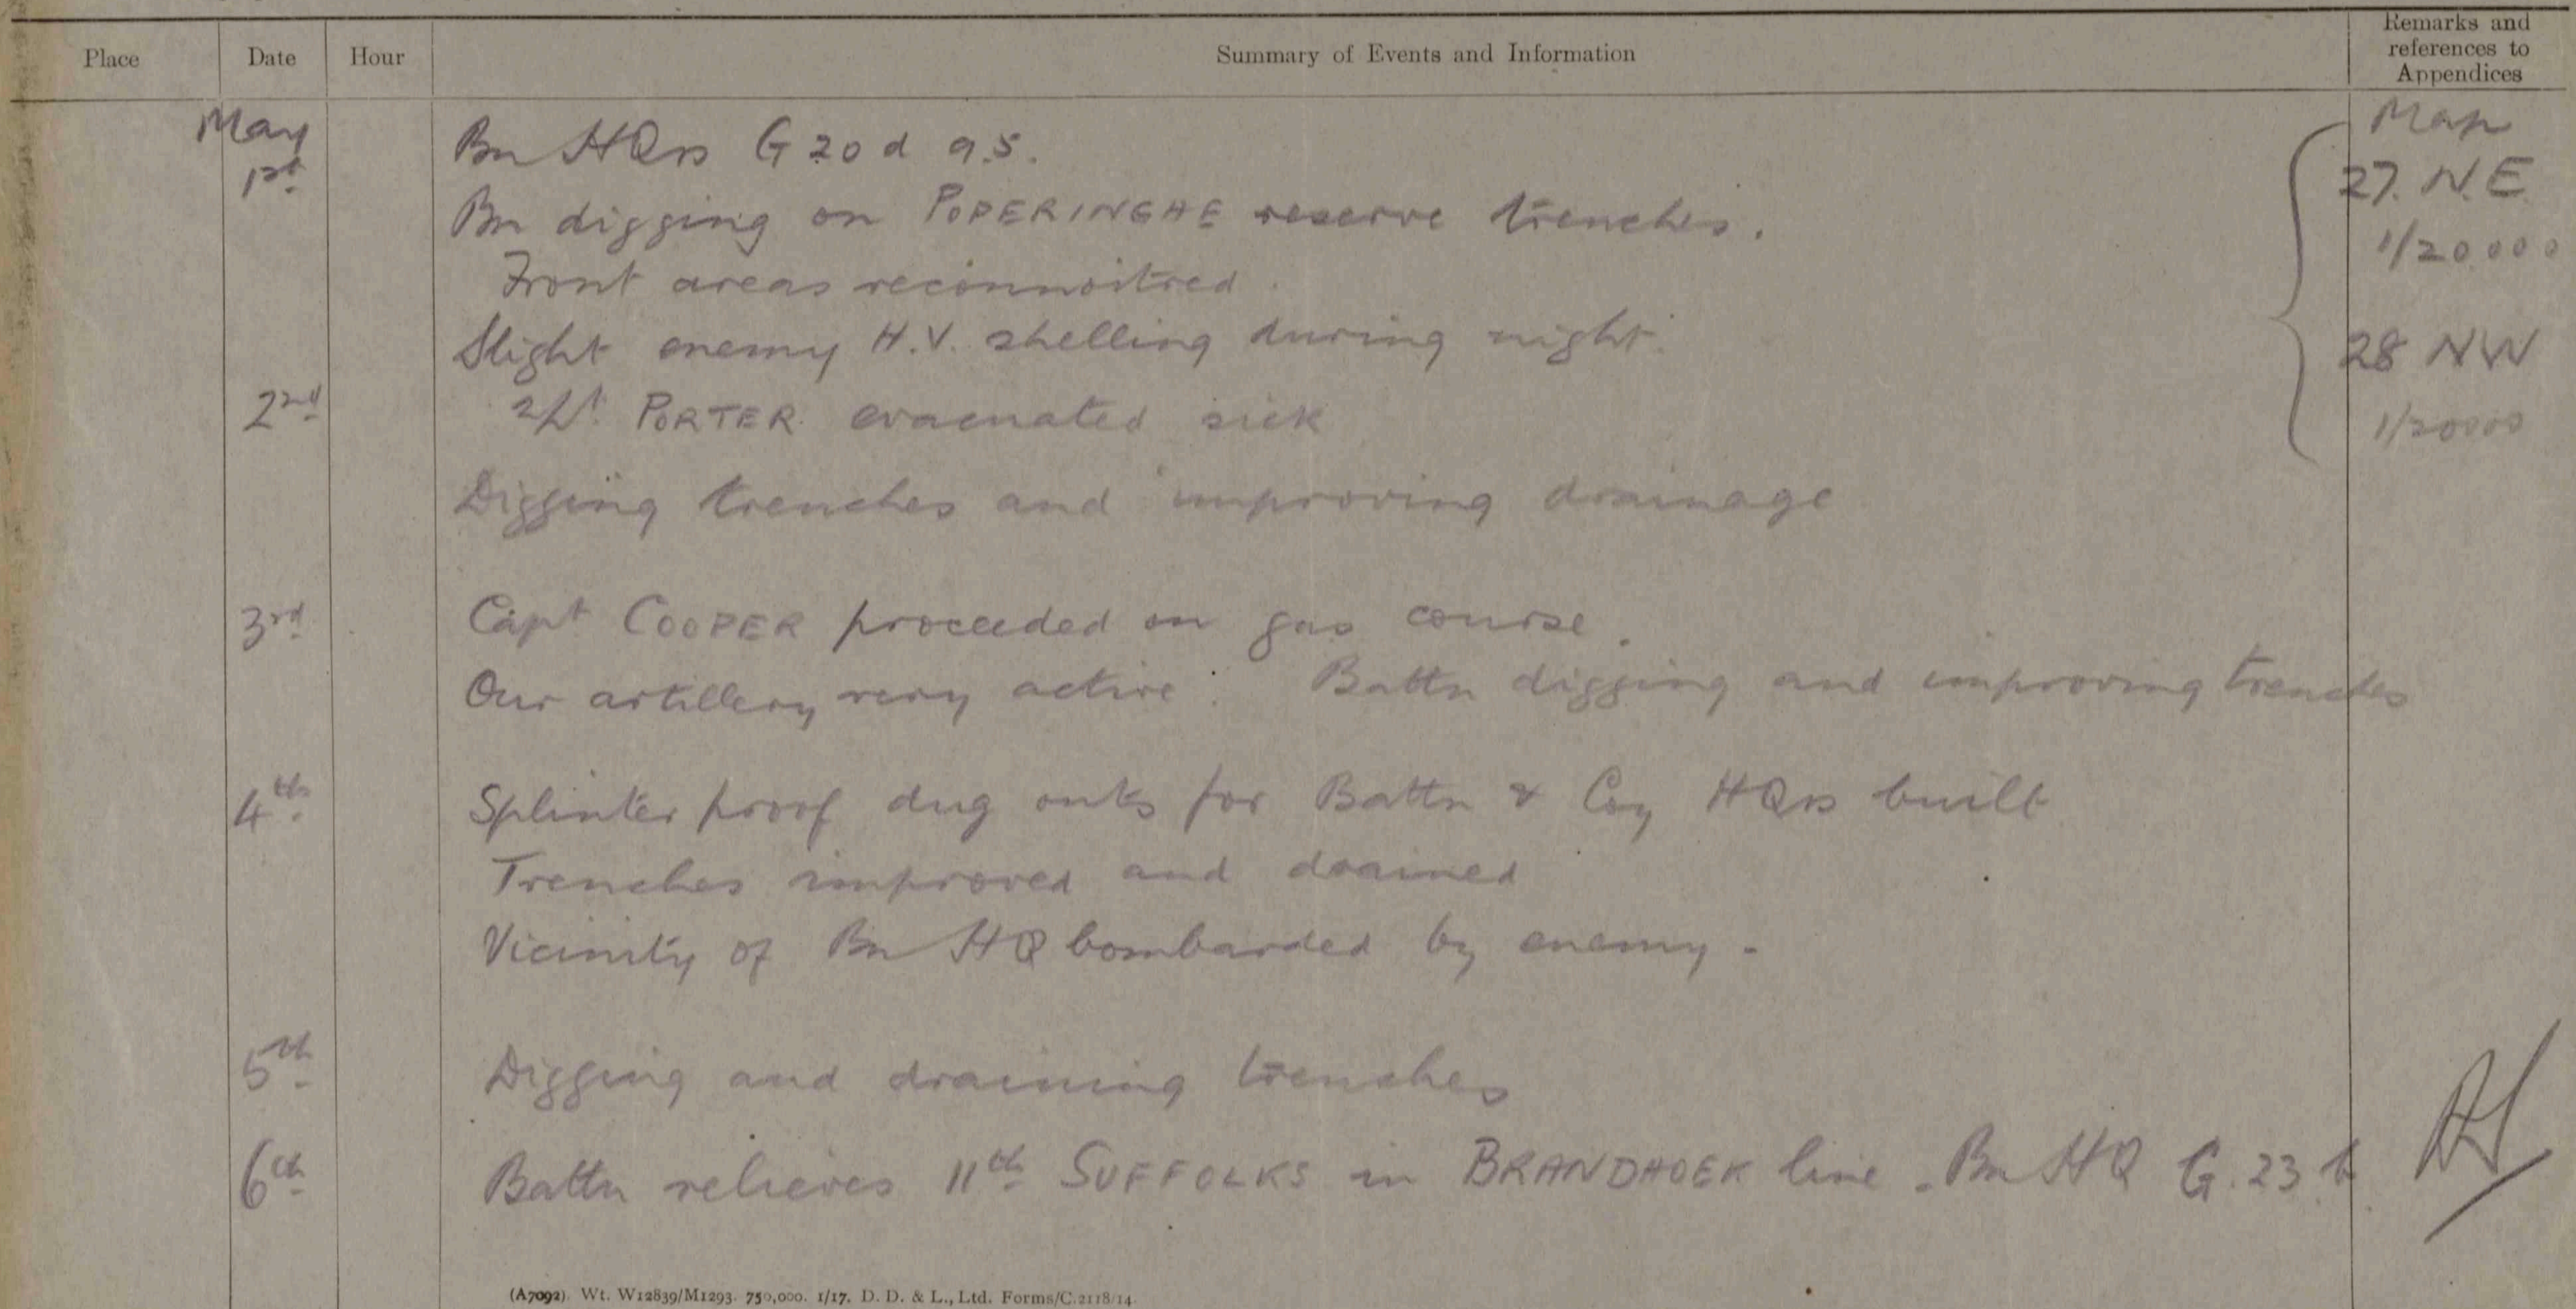 Place Date Hour Summary of Events and Information Remarks and references to Appendices
May 1st Bn HQrs G 20 d 9.5. Map
Bn digging on POPERINGHE reserve trenches. 27. N.E
Front areas reconnoitred. 1/20000
Slight enemy H.V. shelling during night. 28 NW
2nd 2/Lt PORTER. evacuated sick 1/20000
Digging trenches and improving drainage
3rd Capt COOPER proceeded on gas course.
Our artillery very active. Battn digging and improving trenches
4th Splinter proof dug outs for Battn & Coy HQrs built
Trenches improved and drained
Vicinity of Bn HQ bombarded by enemy -
5th Digging and draining trenches
6th Battn relieves 11th SUFFOLKS in BRANDHOEK line. Bn HQ G. 23 b
(A7092). Wt. W12839/M1293. 750,000. 1/17. D. D. & L., Ltd. Forms/C.2118/14.